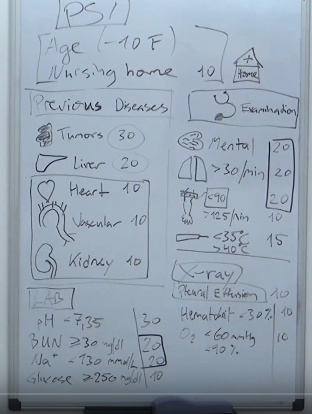 PSI
Age (-10 F)
Nursing home 10
Home
Previous Diseases
Tumors 30
Liver 20
Heart 10
Vascular 10
Kidney 10
Examination
Mental 20
>30/min 20
<90 20
>125/min 10
<35°C 15
>40°C
LAB
pH <7,35 30
BUN ≥30 mg/dl 20
Na+ <130 mmol/L 20
Glucose ≥250 mg/dl 10
X-ray
Pleural Effusion 10
Hematokrit <30% 10
O2 <60 mmHg 10
<90%